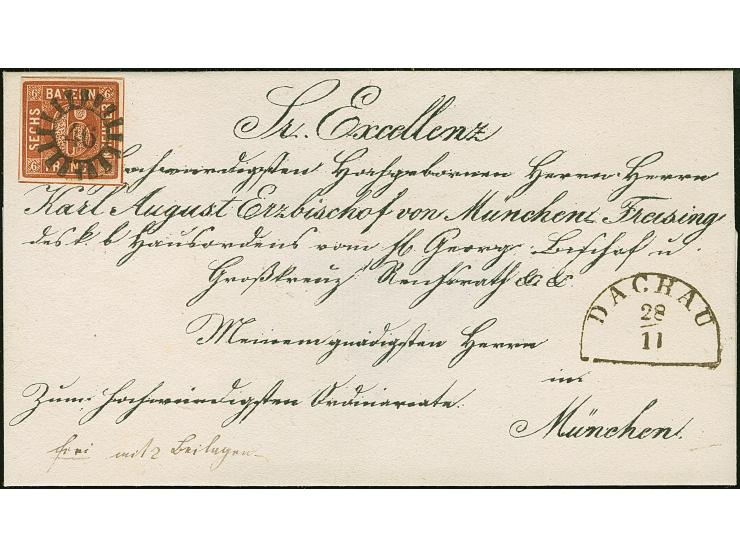 BAYERN
SECHS
6
Sr. Excellenz
Hochwürdigsten Hochgebornen Herrn Herrn
Karl August Erzbischof von München Freising
des k. b Hausordens vom hl. Georg Bischof u.
Großkreuz Reichsrath &c &c.
DACHAU
28
11
Meinem gnädigsten Herrn
in:
Zum hochwürdigsten Ordinariate.
München.
frei mit 2 Beilagen